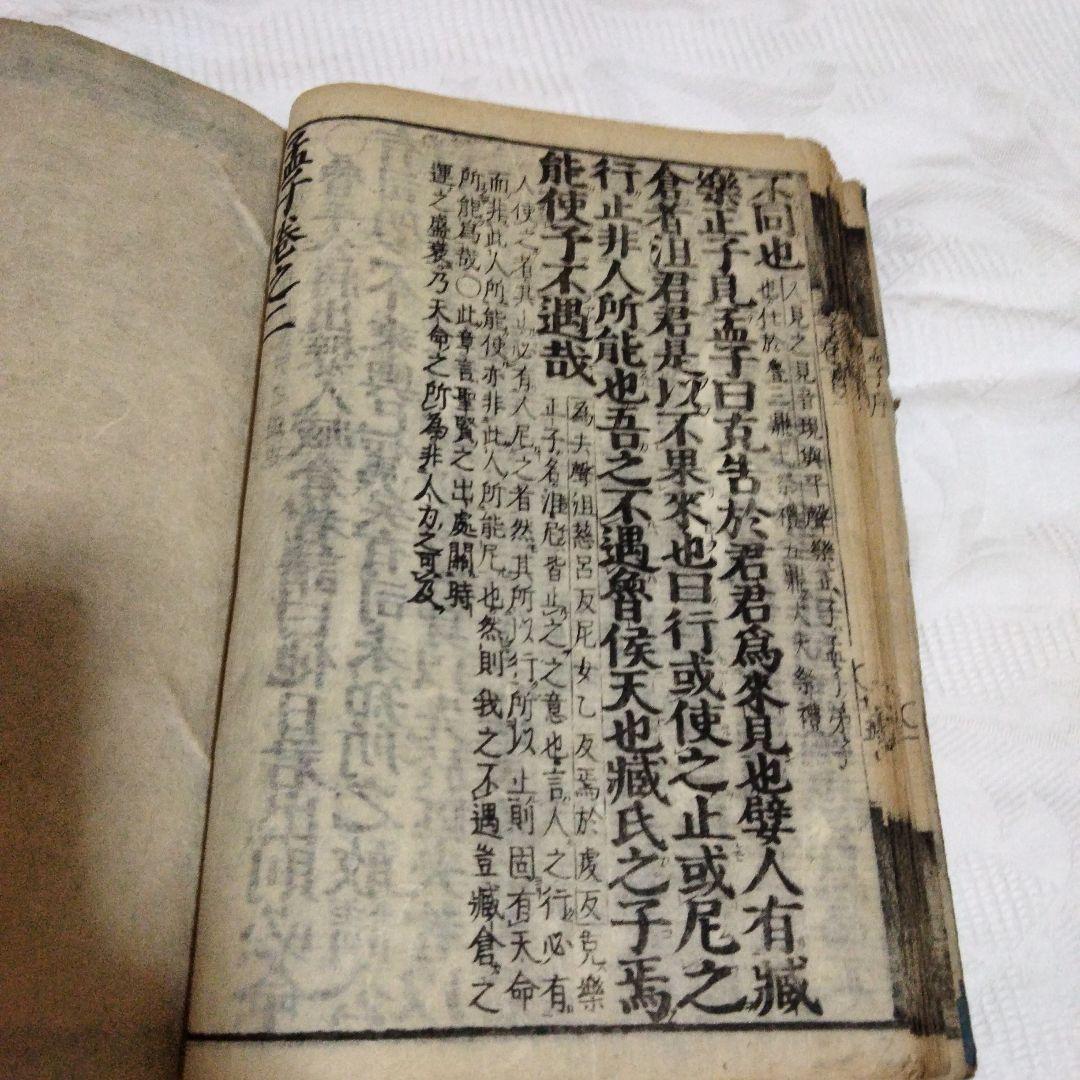 不同也
入見之見音現與平聲樂正子孟子弟子
也仕於魯三鼎士祭禮五鼎大夫祭禮
樂正子見孟子曰克告於君君爲來見也嬖人有臧
倉者沮君君是以不果來也曰行或使之止或尼之
行止非人所能也吾之不遇魯侯天也臧氏之子焉
能使予不遇哉
爲去聲沮慈呂反尼女乙反焉於虔反克樂
正子名沮尼皆止之之意也言人之行必有
人使之者其止必有人尼之者然其所以行所以止則固有天命
而非此人所能使亦非此人所能尼也然則我之不遇豈臧倉之
所能爲哉○此章言聖賢之出處關時
運之盛衰乃天命之所爲非人力之可及
孟子卷之二